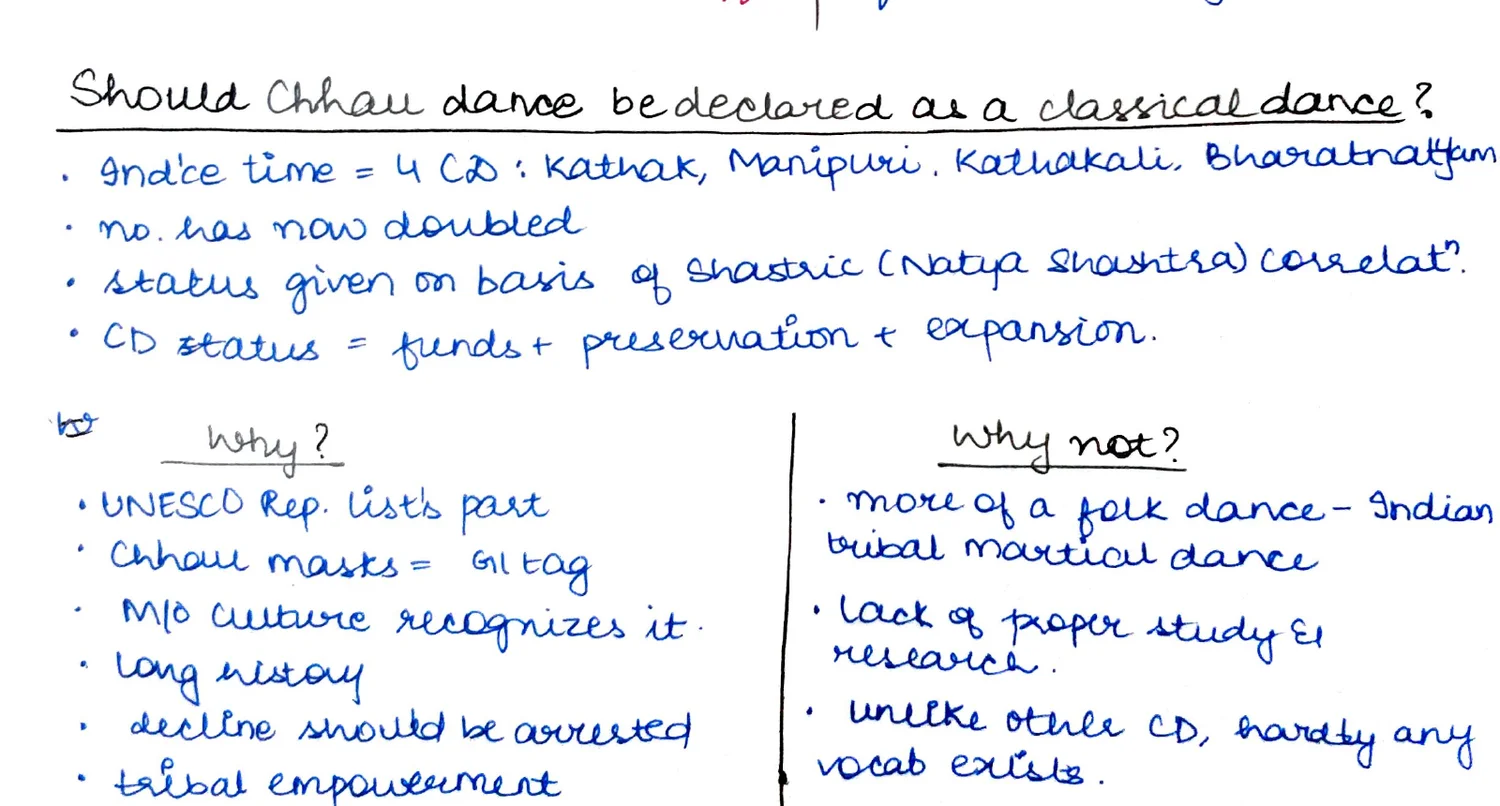 Should Chhau dance be declared as a classical dance?
· Ind'ce time = 4 CD : Kathak, Manipuri, Kathakali, Bharatnatyam
· no. has now doubled
· status given on basis of Shastric (Natya Shashtra) correlatn.
· CD status = funds + preservation + expansion.
Why?
· UNESCO Rep. list's part
· Chhau masks = GI tag
· M/o Culture recognizes it.
· long history
· decline should be arrested
· tribal empowerment
Why not?
· more of a folk dance - Indian
tribal martial dance
· lack of proper study &
research.
· unlike other CD, hardly any
vocab exists.